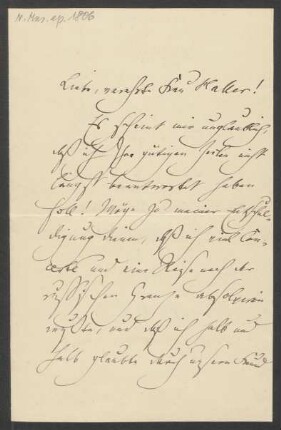 N. Mus. ep. 1806
Liebe, verehrte Frau Haller!
Es scheint mir unglaublich,
daß ich Ihre gütigen Zeilen nicht
längst beantwortet haben
soll! Möge zu meiner Entschul-
digung dienen, daß ich viel Con-
certe und eine Reise nach der
russischen Grenze absolviren
mußte, und daß ich halb und
halb glaubte durch unsern